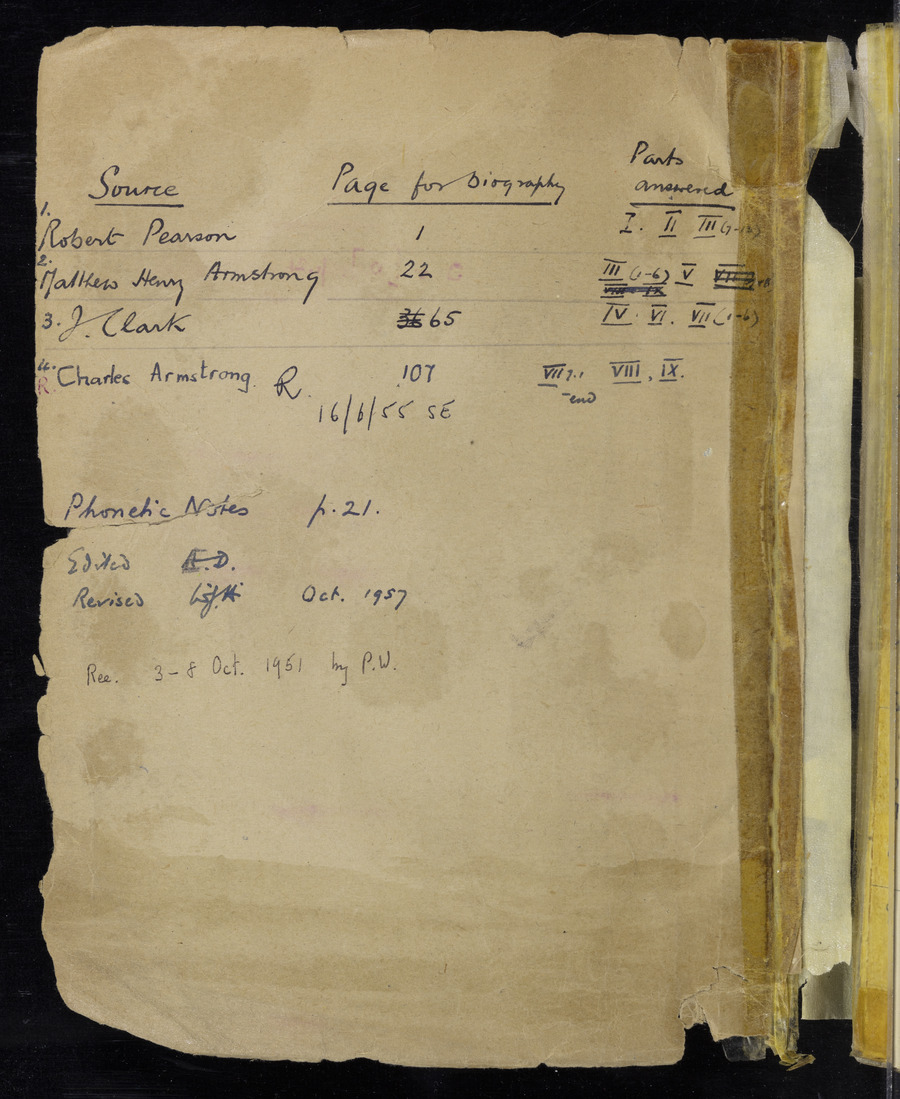 Parts
Source Page for Biography answered
1.
Robert Pearson 1 I. II III (7-13)
2.
Matthew Henry Armstrong 22 III (1-6) V
3. J. Clark 65 IV. VI. VII (1-6)
4.
R. Charles Armstrong. R. 107 VII 7.1 VIII, IX.
-end
16/6/55 SE
Phonetic Notes p.21.
Edited A.D.
Revised Oct. 1957
Rec. 3-8 Oct. 1951 by P.W.